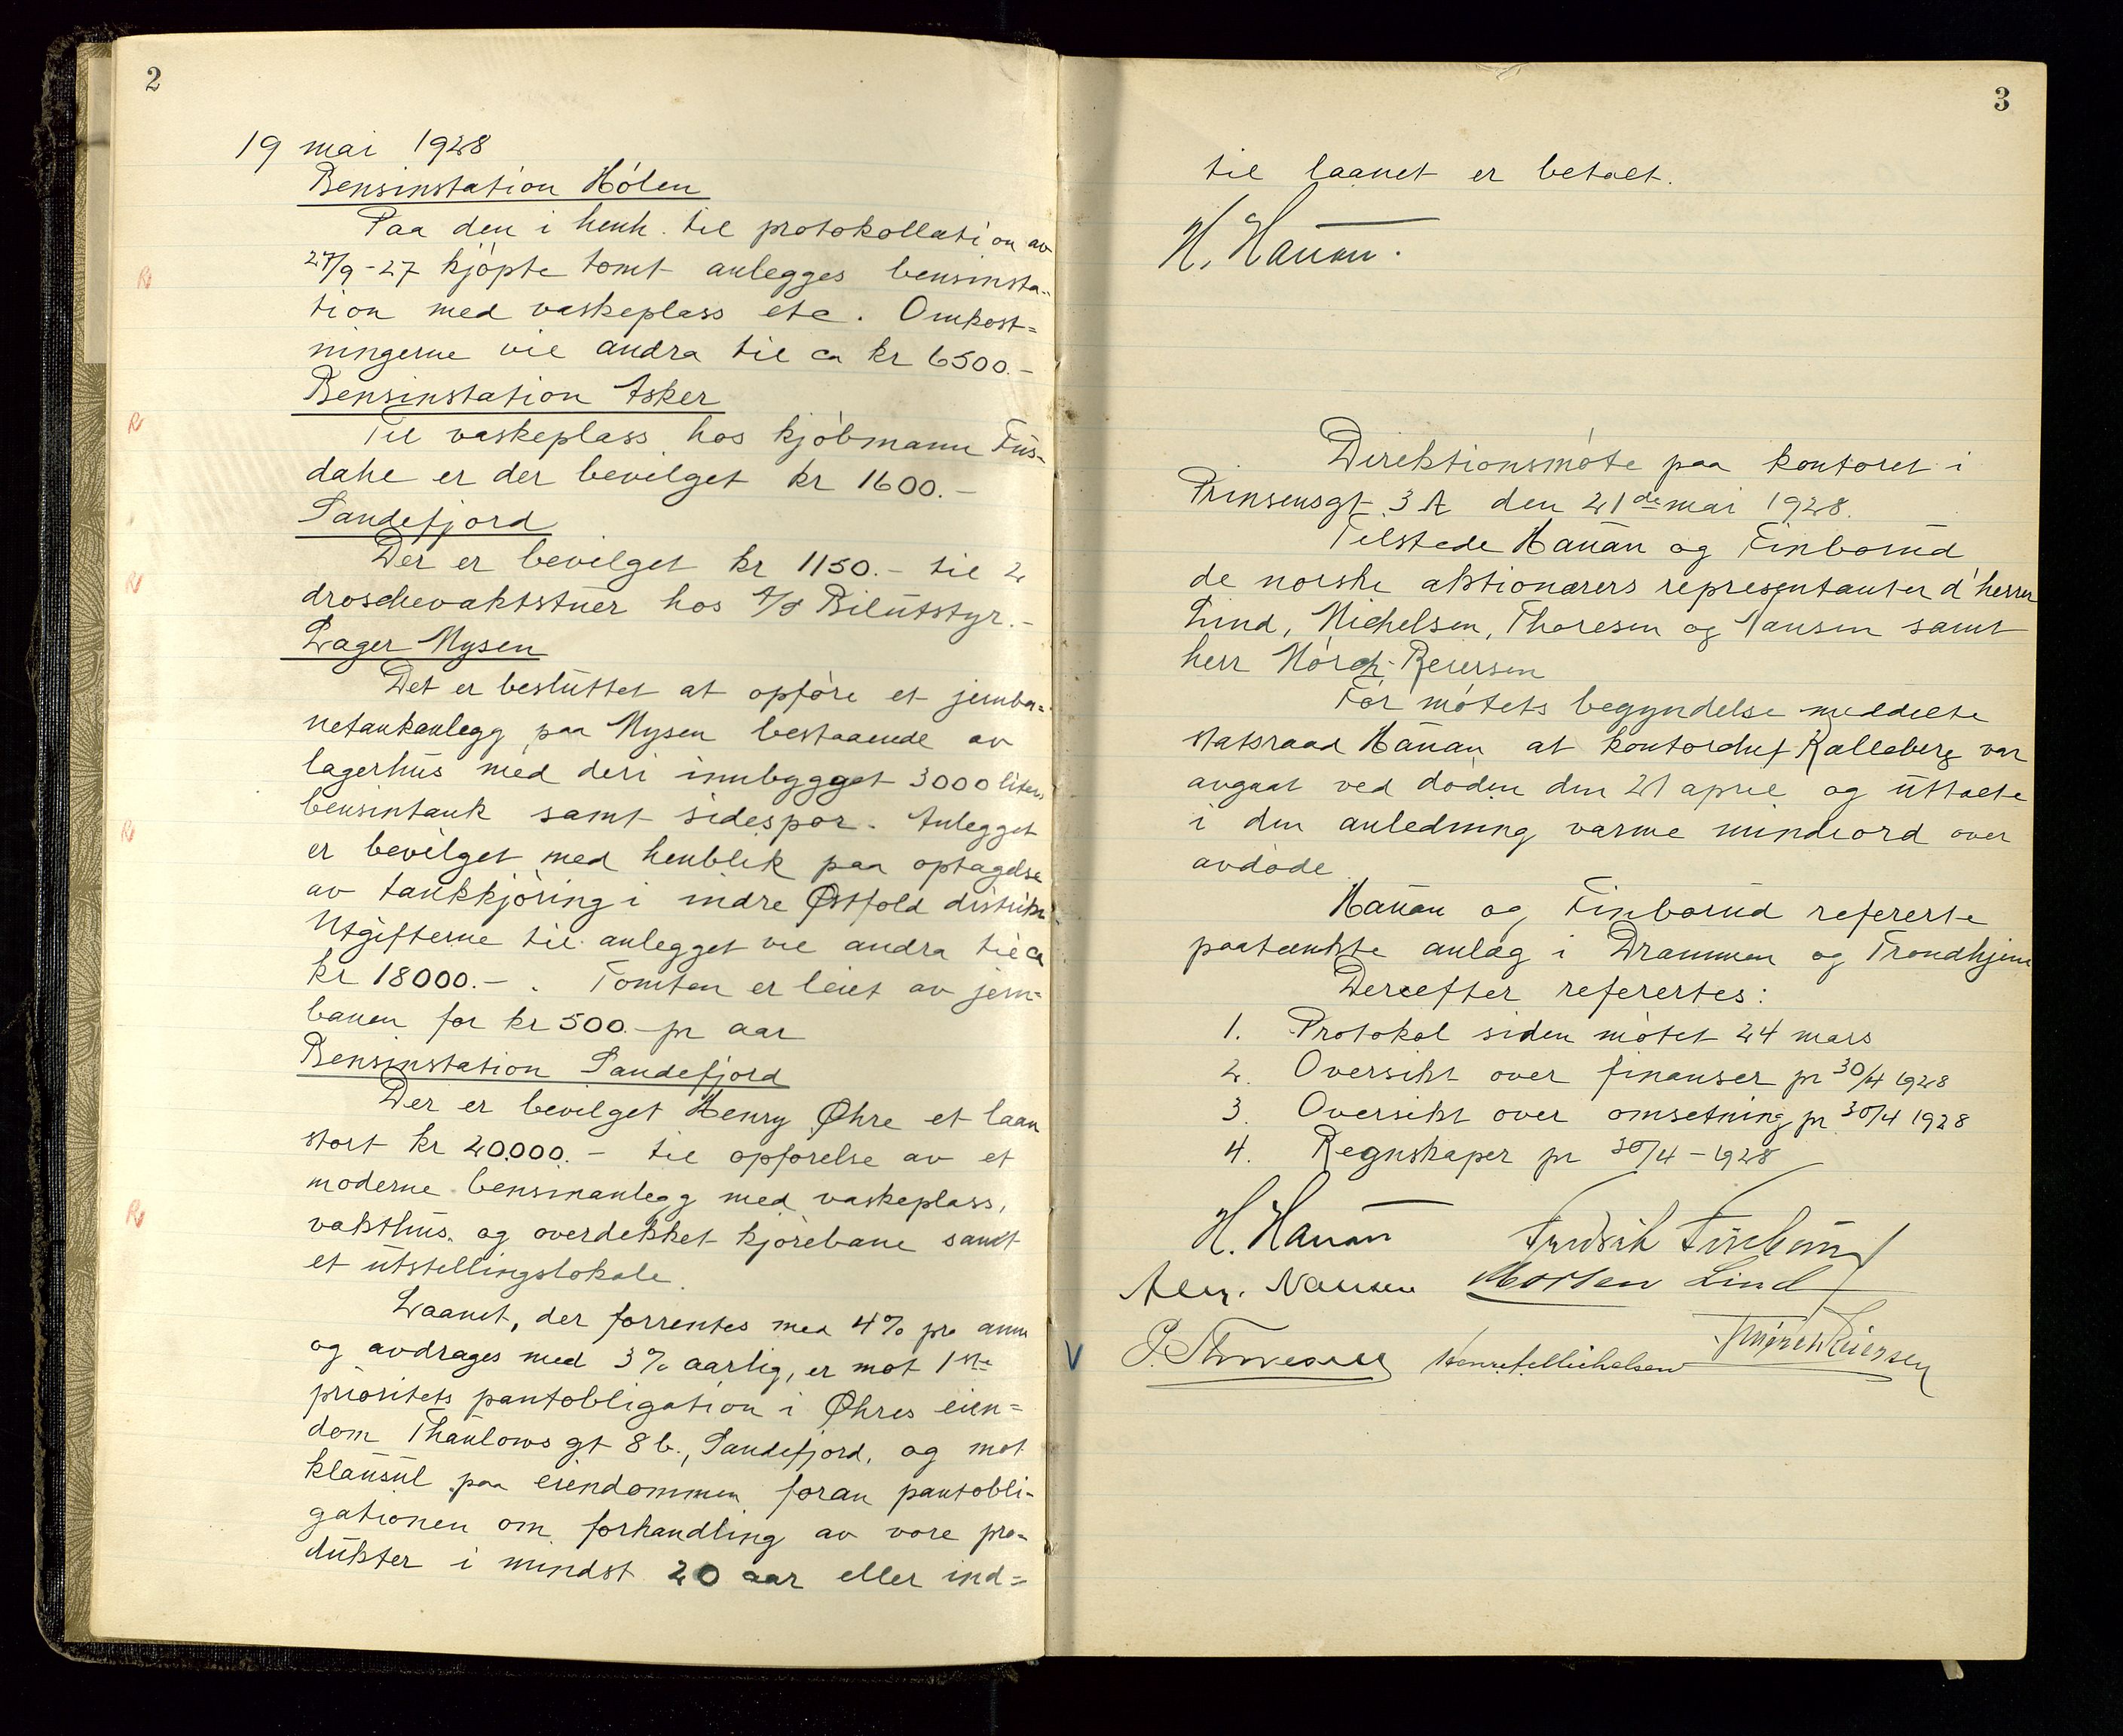 2
19 mai 1928
Bensinstation Hólen
Paa den i henh. til protokollation av
27/9-27 kjópte tomt anlegges bensinsta-
tion med vaskeplass etc. Omkost=
ningerne vil andra til ca kr 6500.-
Bensinstation Asker
Til vaskeplass hos kjóbmann Fus-
dahl er der bevilget kr 1600.-
Sandefjord
Der er bevilget kr 1150.- til 2
droschevaktstuer hos A/S Bilutstyr.-
Lager Mysen
Det er besluttet at opfóre et jernba=
netankanlegg paa Mysen bestaaende av
lagerhus med deri innbygget 3000 liters
bensintank samt sidespor. Anlegget
er bevilget med henblik paa optagelse
av tankkjóring i indre Østfold distrikt.
Utgifterne til anlegget vil andra til ca
kr 18000.-. Tomten er leiet av jern-
banen for kr 500.- pr aar
Bensinstation Sandefjord
Der er bevilget Henry Øhre et laan
stort kr 20.000.- til opfórelse av et
moderne bensinanlegg med vaskeplass,
vakthus, og overdekket kjórebane samt
et utstellingslokale.
Laanet, der forrentes med 4% pro anno
og avdrages med 3% aarlig, er mot 1ste
prioritets pantobligation i Øhres eien=
dom Thaulows gt 8 b., Sandefjord, og mot
klausul paa eiendommen foran pantobli-
gationen om forhandling av vore pro-
dukter i mindst 20 aar eller ind=
3
til laanet er betalt.
H. Hauan.
Direktionsmóte paa kontoret i
Prinsensgt 3 A den 21de mai 1928.
Tilstede Hauan og Finborud
de norske aktionærers representanter d'herrer
Lind, Michelsen, Thoresen og Nansen samt
herr Mórch-Reiersen
Fór mótets begyndelse meddelte
statsraad Hauan at kontorchef Kalleberg var
avgaat ved dóden den 21 april og uttalte
i den anledning varme mindeord over
avdóde.
Hauan og Finborud refererte
paatænkte anlæg i Drammen og Trondhjem
Derefter refererte​s:
1. Protokol siden mótet 24 mars
2. Oversikt over finanser pr 30/4 1928
3. Oversikt over omsetning pr 30/4 1928
4. Regnskaper pr 30/4-1928
H. Hauan Fredrik Finborud
Alex. Nansen Morten Lind
P. Thoresen Henrik Michelsen Mørch Reiersen